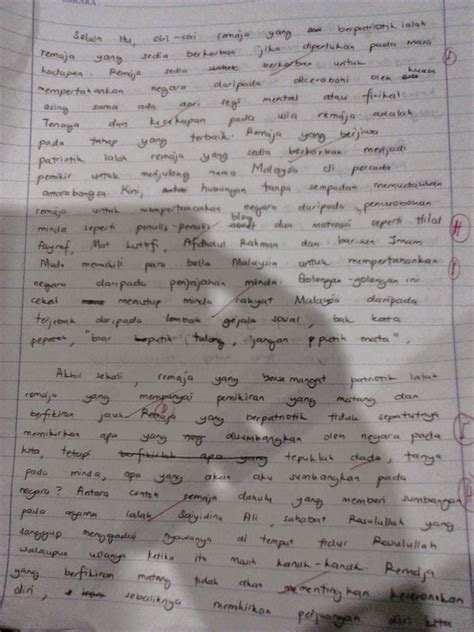 Selain itu, ciri-ciri remaja yang berpatriotik ialah
remaja yang sedia berkorban jika diperlukan pada masa
hadapan. Remaja sedia berkorban untuk
mempertahankan negara daripada dicerobohi oleh kuasa
asing sama ada dari segi mental atau fizikal.
Tenaga dan kecekapan pada usia remaja adalah
pada tahap yang terbaik. Remaja yang berjiwa
patriotik ialah remaja yang sedia berkorban menjadi
pemikir untuk menjulang nama Malaysia di persada
antarabangsa. Kini, hubungan tanpa sempadan memudahkan
remaja untuk mempertahankan negara daripada penerobosan
minda seperti penulis-penulis blog dan motivasi seperti Hilal
Asyraf, Mat Afdholul Rahman dan barisan Imam
Muda membantu para belia Malaysia untuk mempertahankan
negara daripada penjajahan minda. Golongan-golongan ini
cekal menutup minda rakyat Malaysia daripada
terjebak daripada lembah gejala sosial, bak kata
pepatah, "biar putih tulang, jangan putih mata".
Akhir sekali, remaja yang bersemangat patriotik ialah
remaja yang mempunyai pemikiran yang matang dan
berfikiran jauh. Remaja yang berpatriotik tidak sepatutnya
memikirkan apa yang disumbangkan oleh negara pada
kita, tetapi tepuklah dada, tanya
pada minda, apa yang akan aku sumbangkan pada
negara? Antara contoh remaja dahulu yang memberi sumbangan
pada agama ialah Saiyidina Ali, sahabat Rasulullah yang
sanggup menggadai nyawanya di tempat tidur Rasulullah
walaupun usianya ketika itu masih kanak-kanak. Remaja
yang berfikiran matang tidak akan mementingkan keseronokan
diri, sebaliknya memikirkan perjuangan diri kita